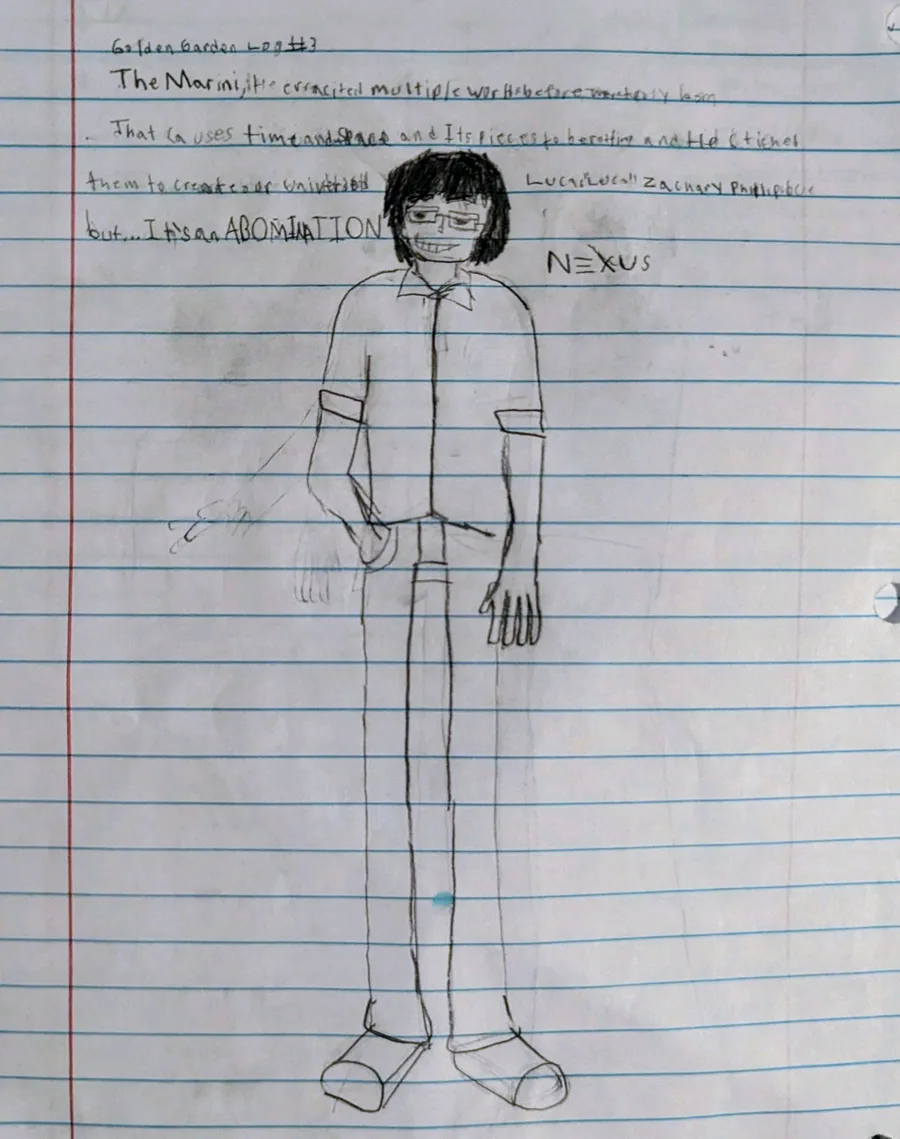 Golden Garden Log #3
The Marini, He erracited multiple worlds before
That causes time and space and Its pieces to be and He Stiched
them to create our universe Lucas "Lucal" Zachary
but... It's an ABOMINATION
NEXUS